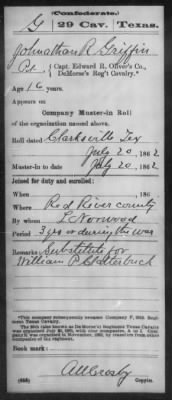 (Confederate.)
G 29 Cav. Texas.
Johnathan R Griffin
Pt., Capt. Edward R. Oliver's Co.,
DeMorse's Reg't Cavalry.*
Age 16 years.
Appears on
Company Muster-in Roll
of the organization named above.
Roll dated Clarksville Tex
July 20, 1862
Muster-in to date July 20, 1862
Joined for duty and enrolled:
When , 186 .
Where Red River county
By whom L Norwood
Period 3 yrs or during the war
Remarks: Substitute for
William P Clatterbuck
*This company subsequently became Company F, 29th Regiment Texas Cavalry.
Book mark:
(635) Copyist.